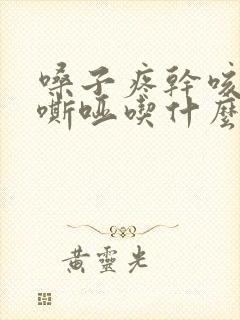 嗓子疼幹咳
嘶啞喫什麼
黃靈光